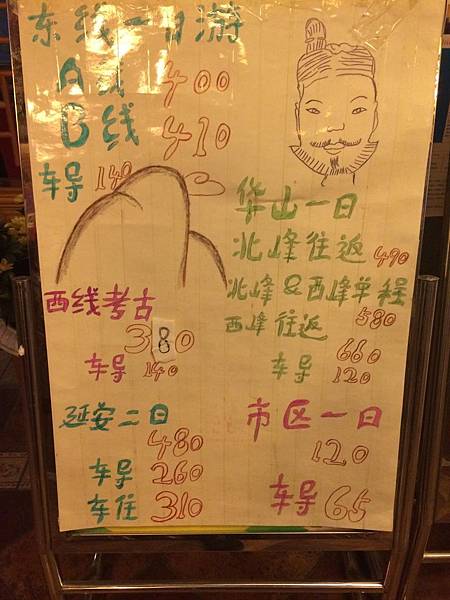 东线一日游
A线 400
B线 410
车导 140
华山一日
北峰往返 490
北峰&西峰单程 580
西峰往返 660
车导 120
西线考古
380
车导 140
延安二日
480
车导 260
车住 310
市区一日
120
车导 65